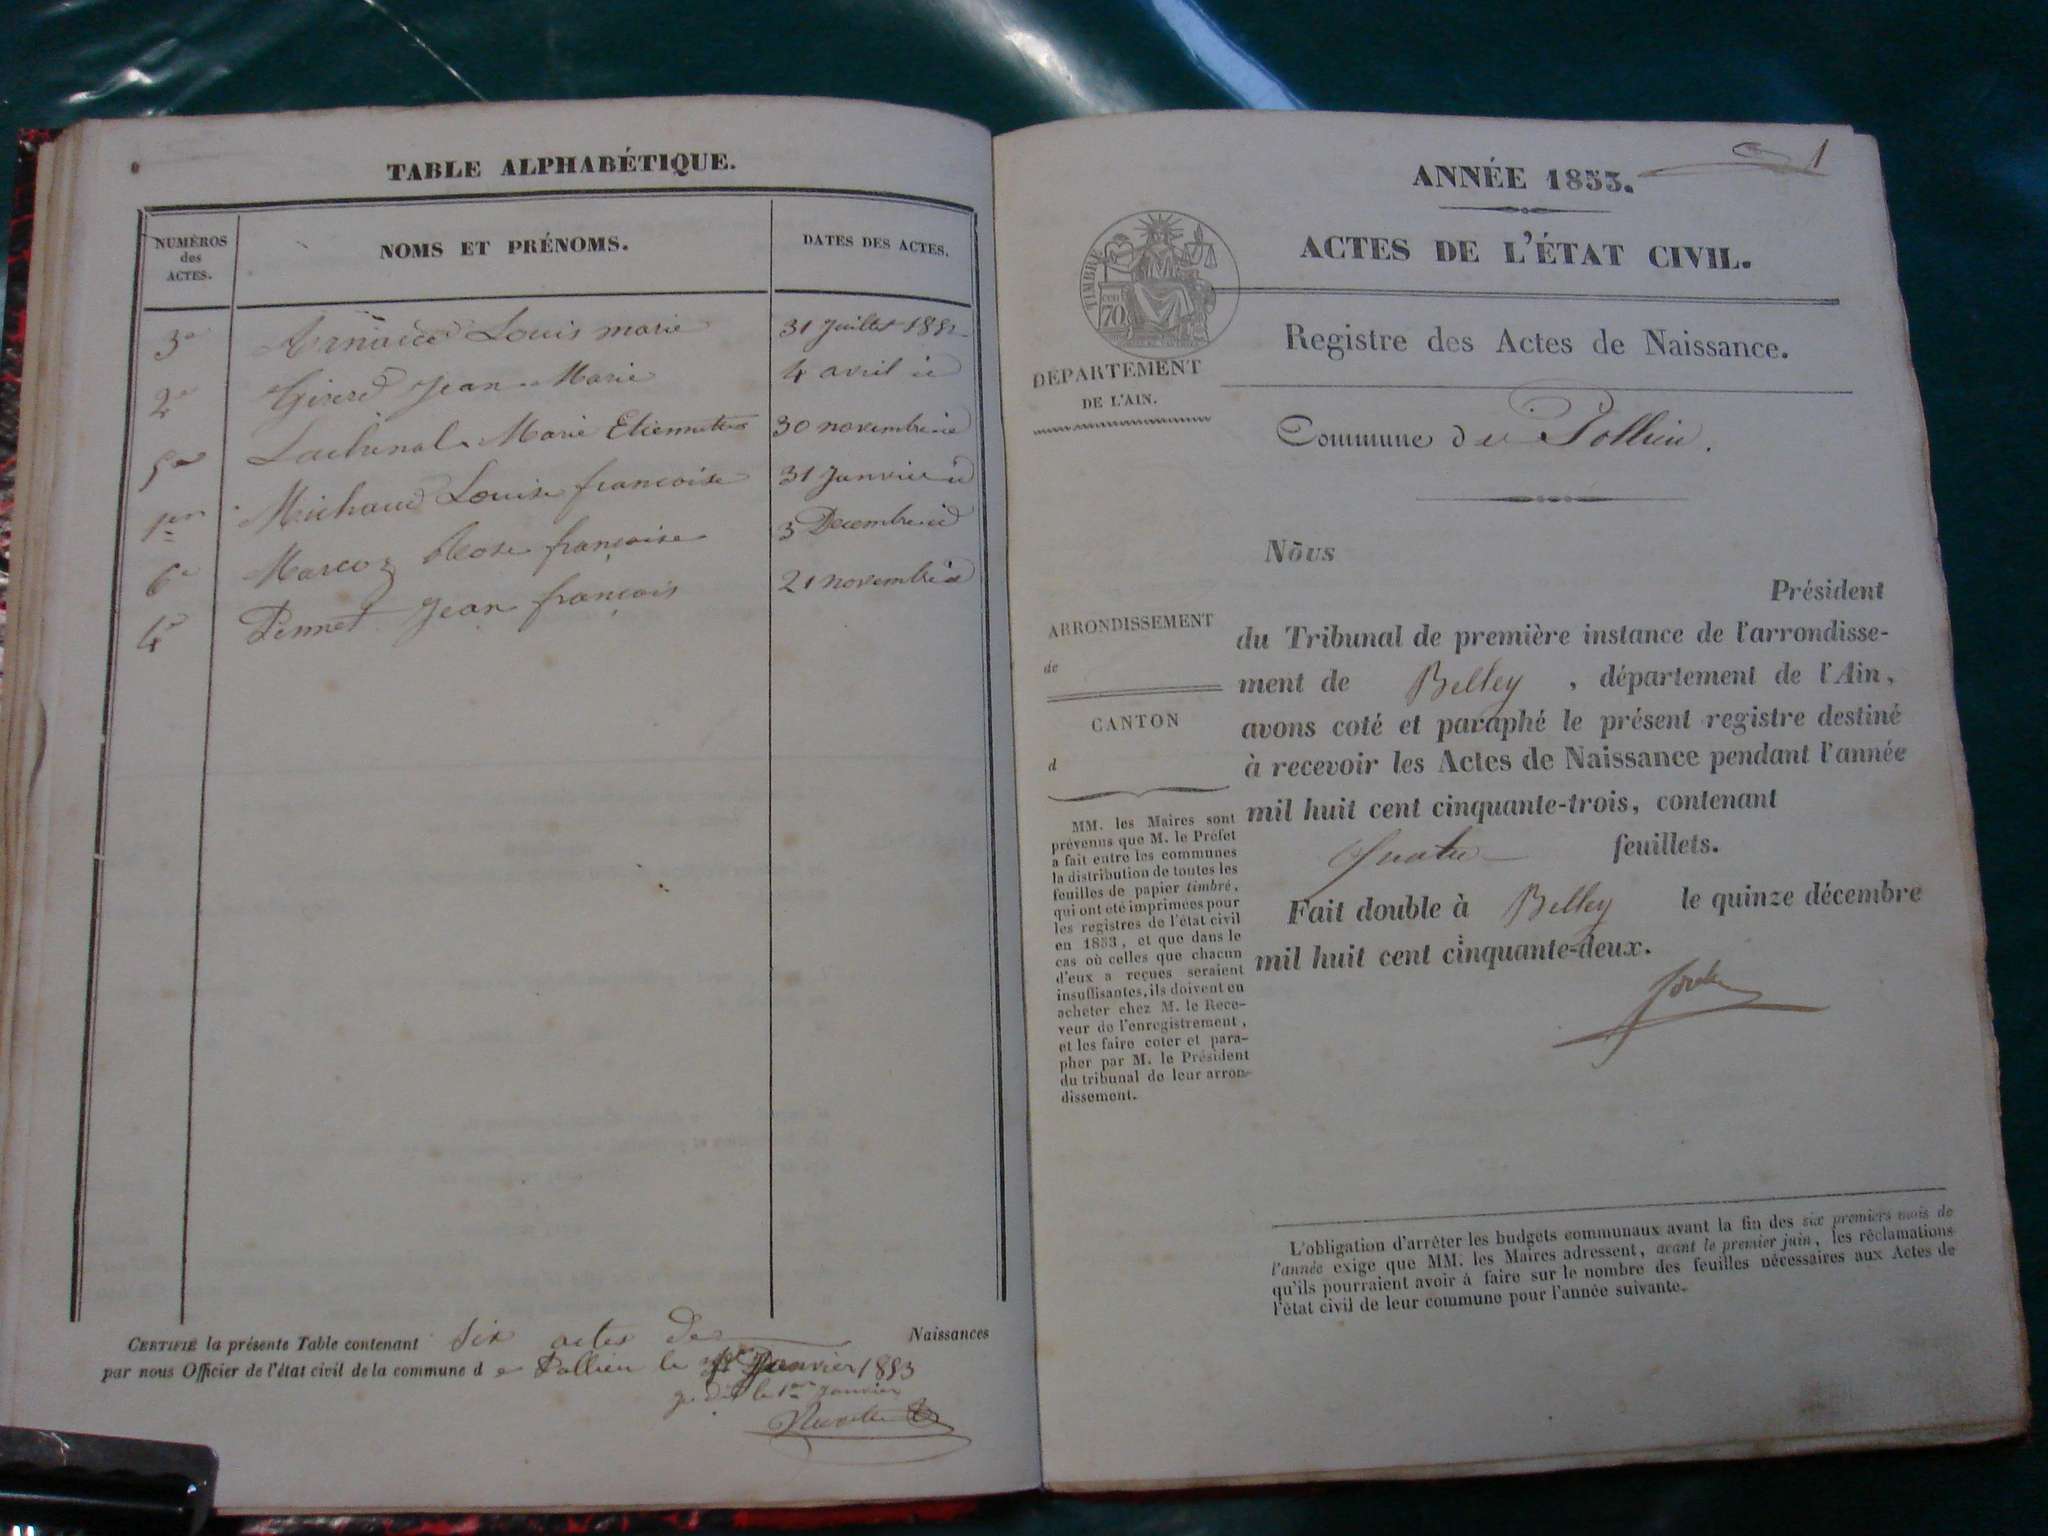 TABLE ALPHABÉTIQUE.
NUMÉROS des ACTES.
NOMS ET PRÉNOMS.
DATES DES ACTES.
3e Louis marie 31 Juillet 1852
2e Girerd Jean Marie 4 avril id
5e Lachenal Marie Etiennette 30 novembre id
1er Michaud Louise françoise 31 Janvier id
6e Marcoz françoise 3 Decembre id
4e Pennet Jean françois 21 novembre id
CERTIFIÉ la présente Table contenant six actes de Naissances
par nous Officier de l'état civil de la commune d e Pollieu le Janvier 1853
le 1er Janvier
1
ANNÉE 1853.
ACTES DE L'ÉTAT CIVIL.
TIMBRE
70 cen
Registre des Actes de Naissance.
DÉPARTEMENT
DE L'AIN.
Commune de Pollieu.
Nous
Président
ARRONDISSEMENT
de
CANTON
d
du Tribunal de première instance de l'arrondisse-
ment de Belley, département de l'Ain,
avons coté et paraphé le présent registre destiné
à recevoir les Actes de Naissance pendant l'année
mil huit cent cinquante-trois, contenant
quatre feuillets.
Fait double à Belley le quinze décembre
mil huit cent cinquante-deux.
MM. les Maires sont
prévenus que M. le Préfet
a fait entre les communes
la distribution de toutes les
feuilles de papier timbré,
qui ont été imprimées pour
les registres de l'état civil
en 1853, et que dans le
cas où celles que chacun
d'eux a reçues seraient
insuffisantes, ils doivent en
acheter chez M. le Rece-
veur de l'enregistrement,
et les faire coter et para-
pher par M. le Président
du tribunal de leur arron-
dissement.
L'obligation d'arrêter les budgets communaux avant la fin des six premiers mois de
l'année exige que MM. les Maires adressent, avant le premier juin, les réclamations
qu'ils pourraient avoir à faire sur le nombre des feuilles nécessaires aux Actes de
l'état civil de leur commune pour l'année suivante.